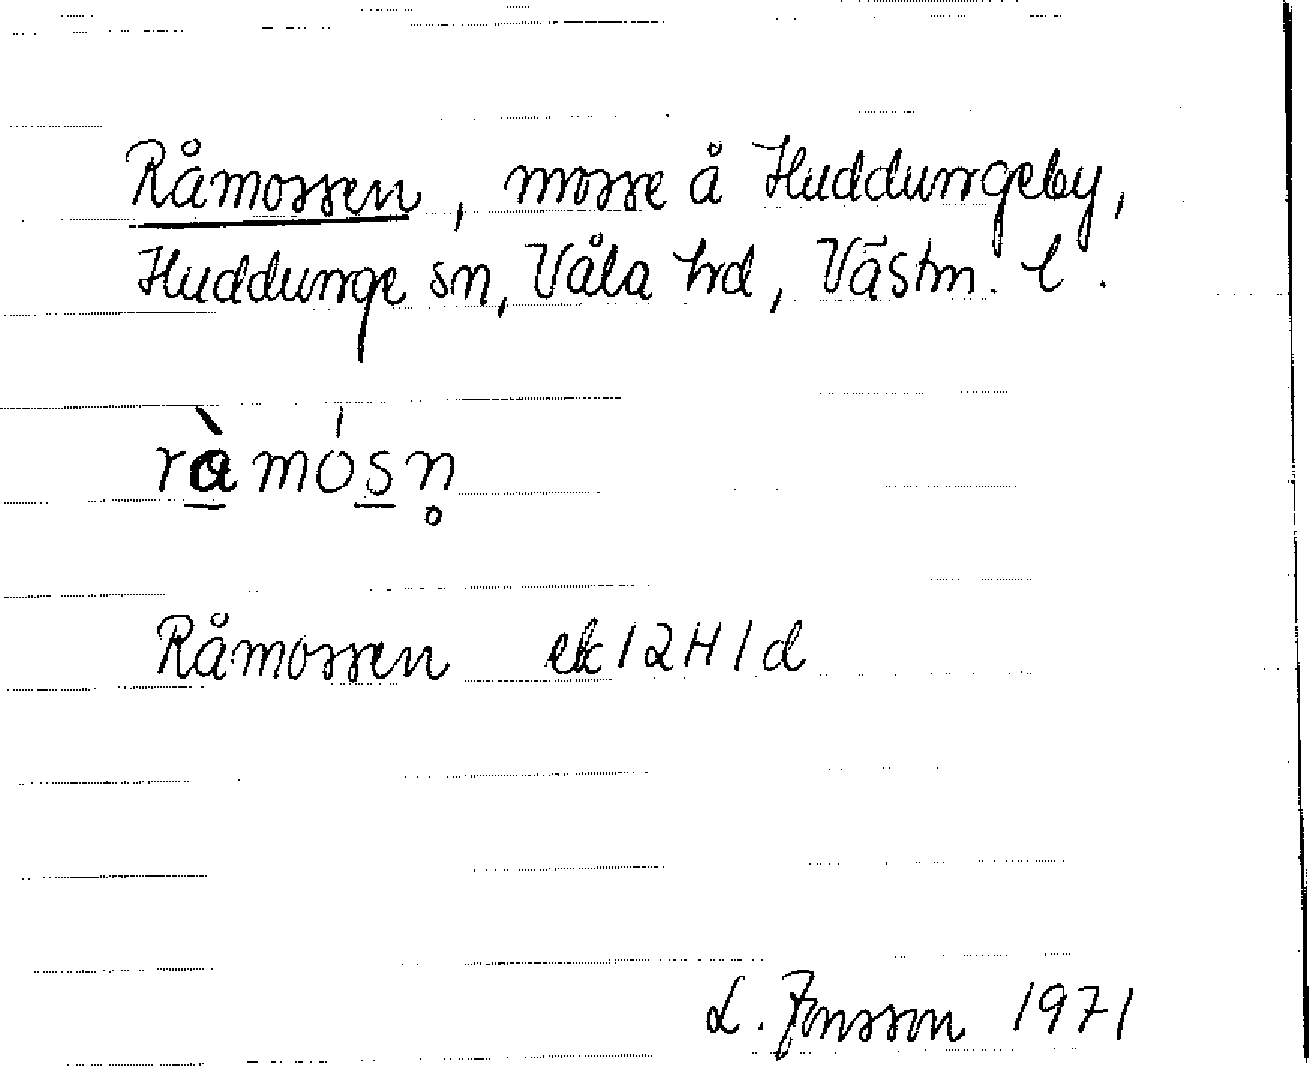 Råmossen, mosse å Huddungeby,
Huddunge sn, Våla hd, Västm. l.
rå̀mósn̥
Råmossen ek 12H1d
L. Jonsson 1971